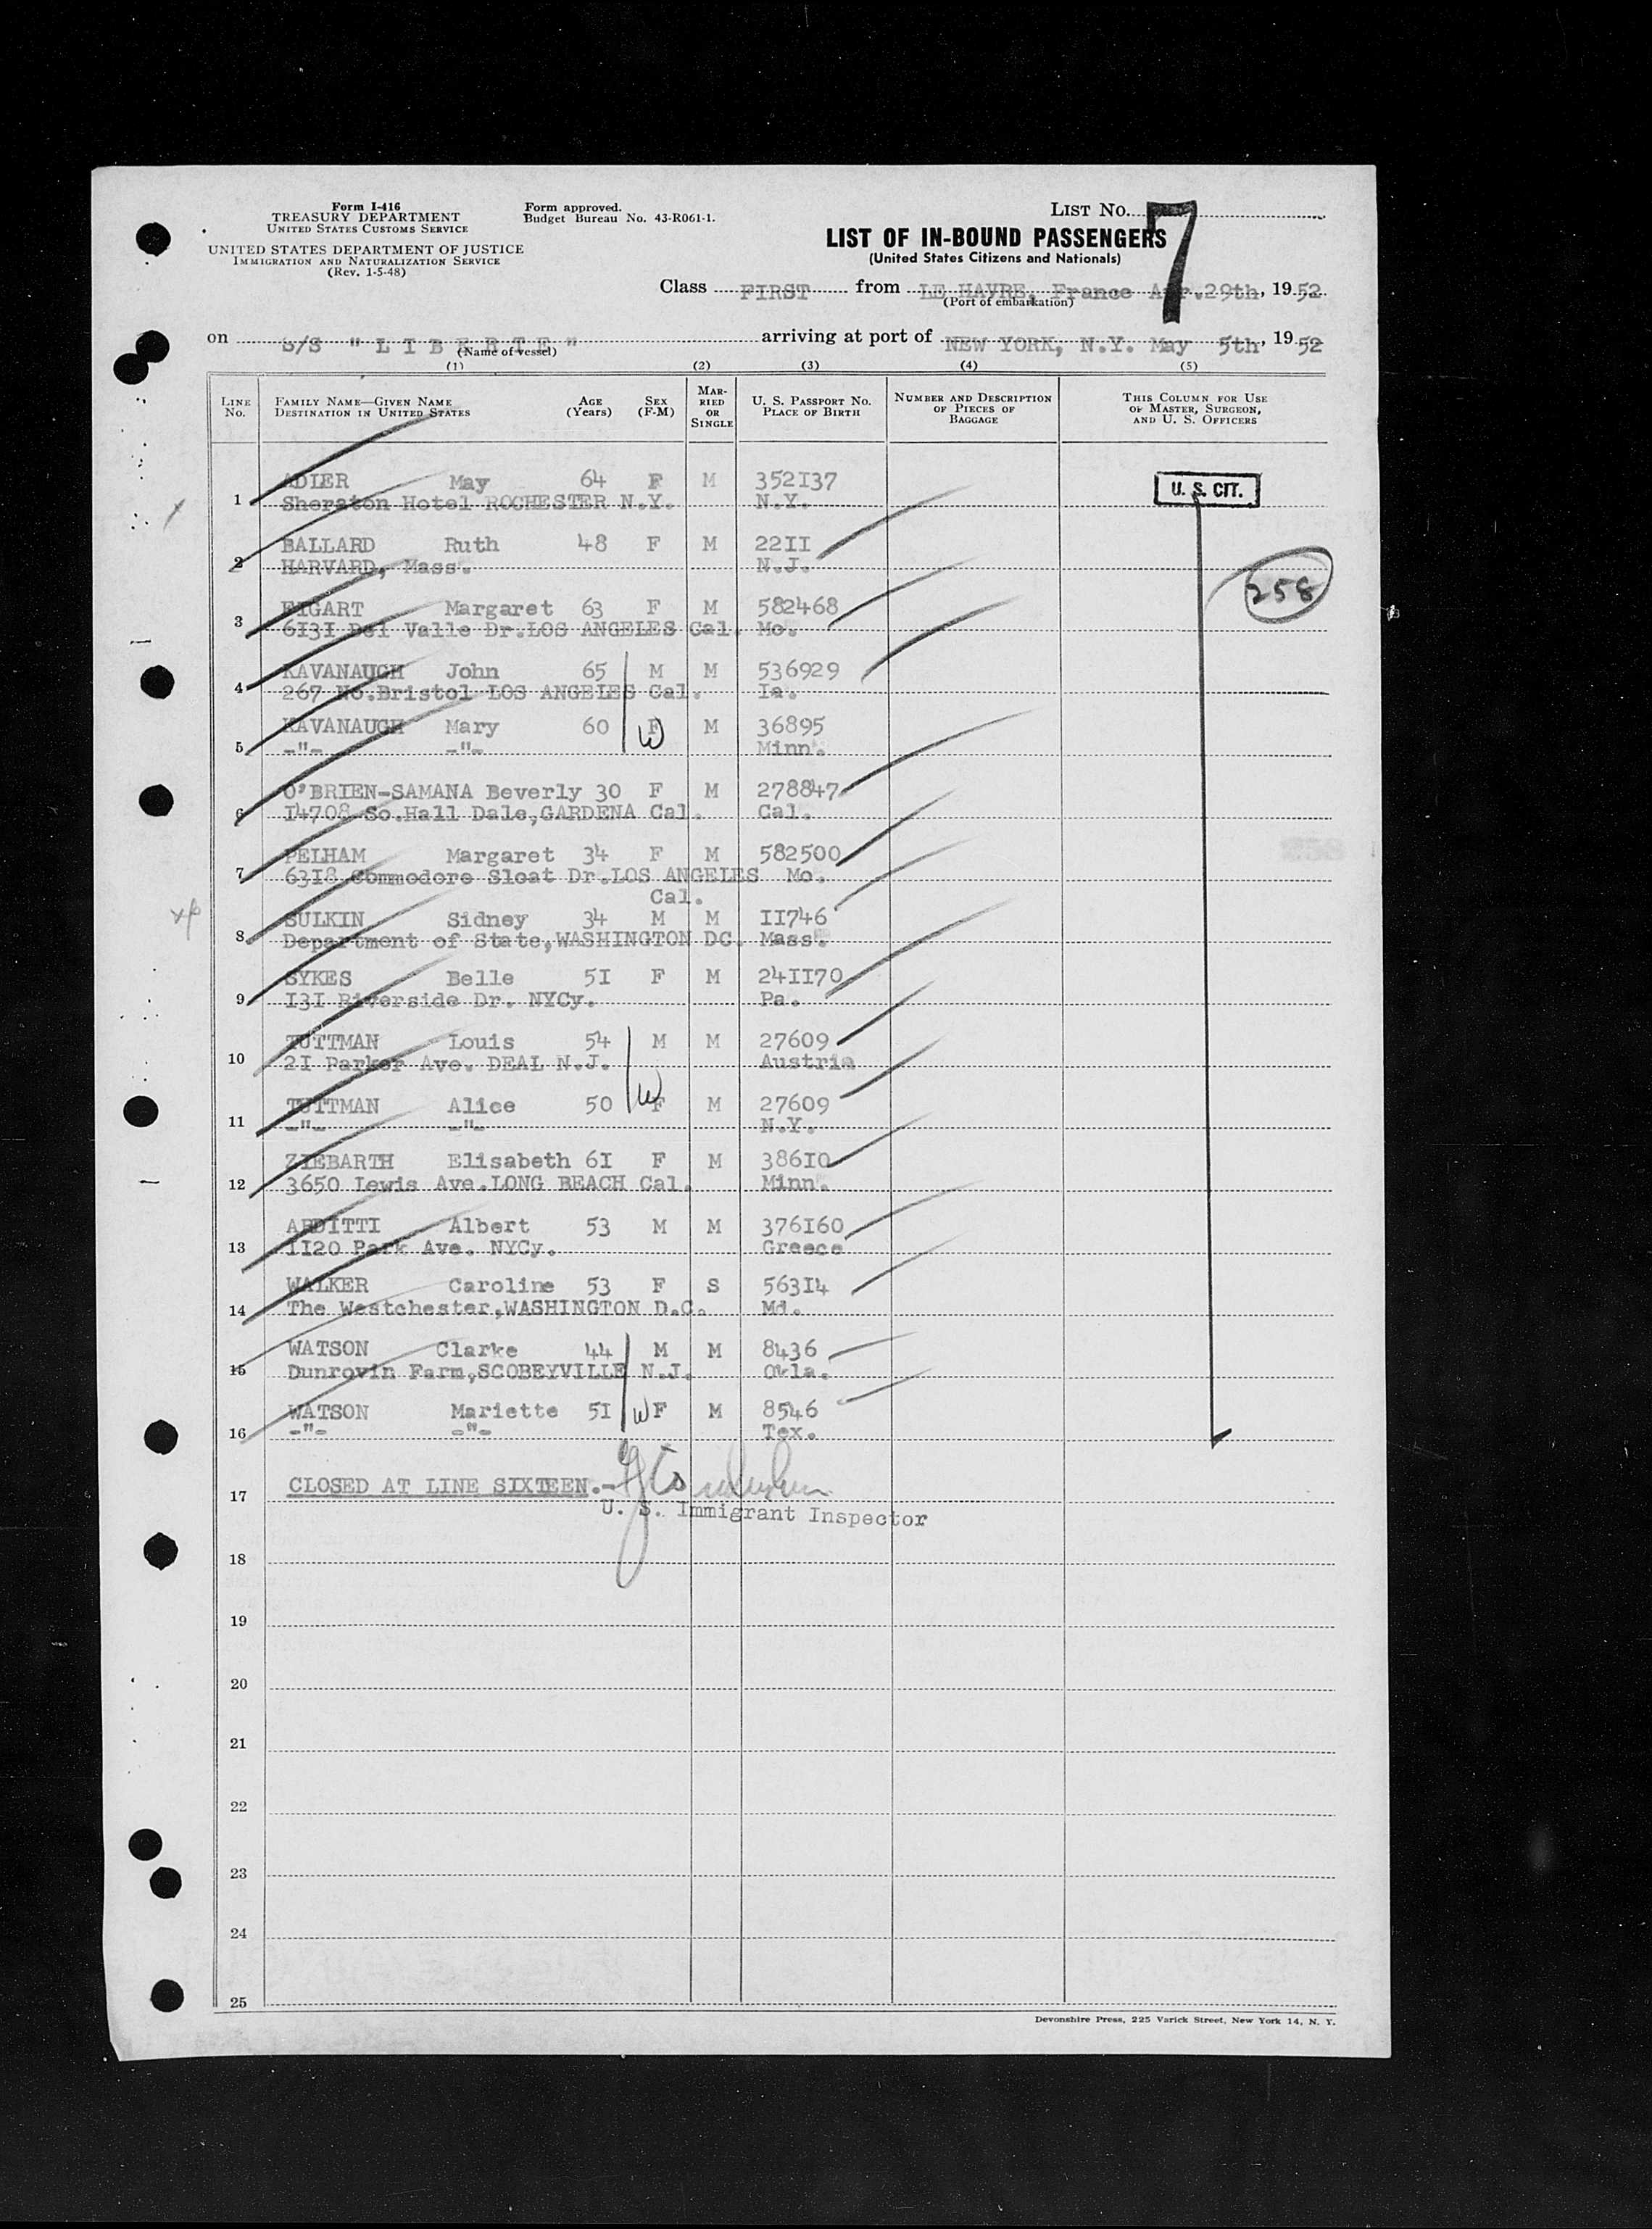 Form I-416
TREASURY DEPARTMENT
UNITED STATES CUSTOMS SERVICE
UNITED STATES DEPARTMENT OF JUSTICE
IMMIGRATION AND NATURALIZATION SERVICE
(Rev. 1-5-48)
Form approved.
Budget Bureau No. 43-R061-1.
LIST No. 7
LIST OF IN-BOUND PASSENGERS
(United States Citizens and Nationals)
Class FIRST from LE HAVRE, France Apr. 29th, 1952
(Port of embarkation)
on S/S "LIBERTE" arriving at port of NEW YORK, N.Y. May 5th, 1952
(Name of vessel)
(1) (2) (3) (4) (5)
LINE No. FAMILY NAME—GIVEN NAME DESTINATION IN UNITED STATES AGE (Years) SEX (F-M) MARRIED OR SINGLE U. S. PASSPORT NO. PLACE OF BIRTH NUMBER AND DESCRIPTION OF PIECES OF BAGGAGE THIS COLUMN FOR USE OF MASTER, SURGEON, AND U. S. OFFICERS
ADIER May 64 F M 352I37 U. S. CIT.
1 Sheraton Hotel ROCHESTER N.Y. N.Y.
BALLARD Ruth 48 F M 22II
2 HARVARD, Mass. N.J.
258
Margaret 63 F M 582468
3 6I3I Del Valle Dr.LOS ANGELES Cal. Mo.
KAVANAUGH John 65 M M 536929
4 267 No.Bristol LOS ANGELES Cal. Ia.
KAVANAUGH Mary 60 F W M 36895
5 -"- -"- Minn.
O'BRIEN-SAMANA Beverly 30 F M 278847
6 I4708 So.Hall Dale,GARDENA Cal. Cal.
PELHAM Margaret 34 F M 582500
7 63I8 Commodore Sloat Dr.LOS ANGELES Mo.
Cal.
SULKIN Sidney 34 M M II746
8 Department of State,WASHINGTON DC. Mass.
SYKES Belle 5I F M 24II70
9 I3I Riverside Dr. NYCy. Pa.
TUTTMAN Louis 54 M M 27609
10 2I Parker Ave. DEAL N.J. Austria
TUTTMAN Alice 50 W F M 27609
11 -"- -"- N.Y.
ZIEBARTH Elisabeth 6I F M 386I0
12 3650 Lewis Ave.LONG BEACH Cal. Minn.
ABDITTI Albert 53 M M 376I60
13 II20 Park Ave. NYCy. Greece
WALKER Caroline 53 F S 563I4
14 The Westchester,WASHINGTON D.C. Md.
WATSON Clarke 44 M M 8436
15 Dunrovin Farm,SCOBEYVILLE N.J. Okla.
WATSON Mariette 5I W F M 8546
16 -"- -"- Tex.
CLOSED AT LINE SIXTEEN.-
17
U. S. Immigrant Inspector
18
19
20
21
22
23
24
25
Devonshire Press, 225 Varick Street, New York 14, N. Y.